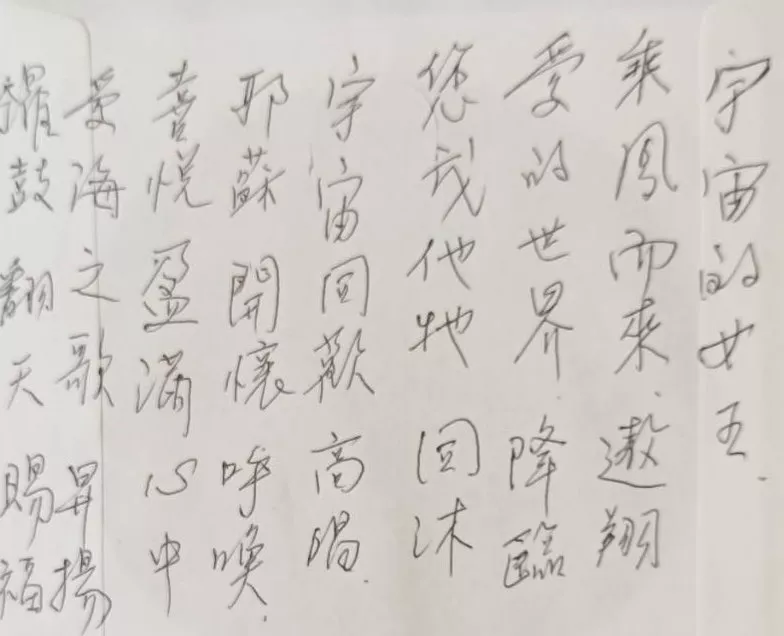 宇宙的女王.
乘鳳而來遨翔
爱的世界降臨
您我他牠同沐
宇宙同歡高唱.
耶蘇開懷呼喚.
喜悅盈滿心中
爱海之歌昇揚
鼓翻天賜福